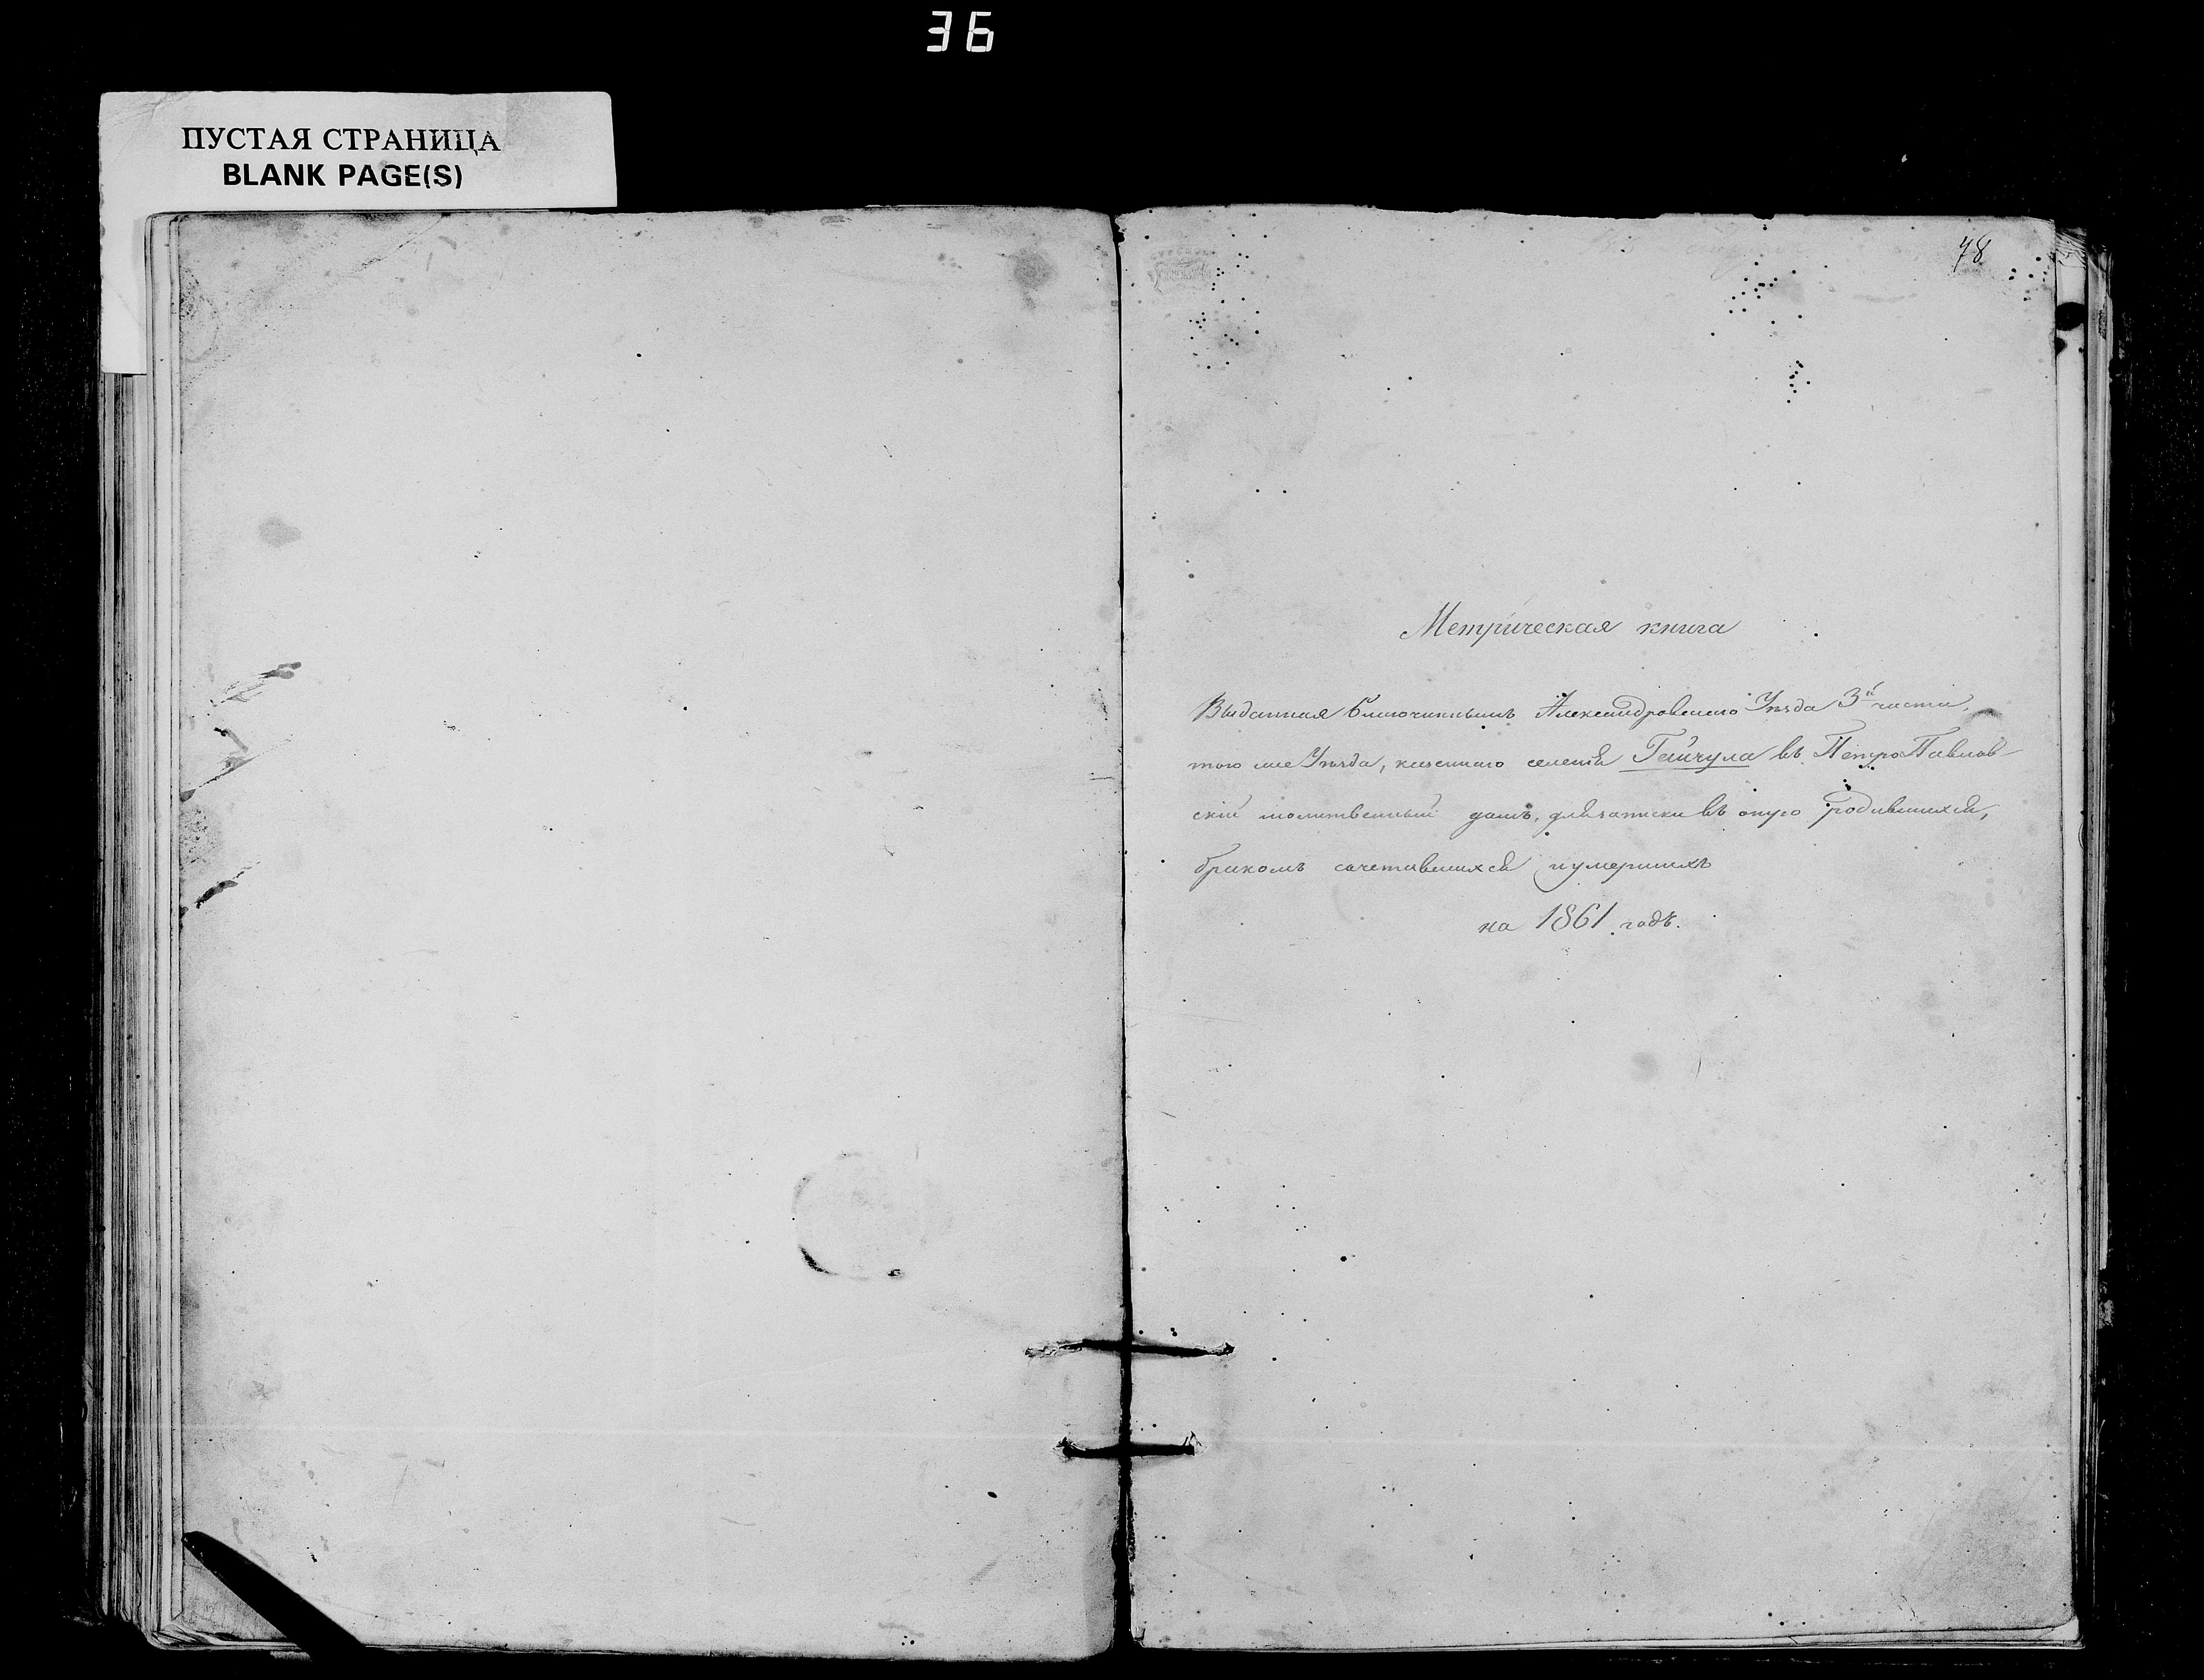 36
ПУСТАЯ СТРАНИЦА
BLANK PAGE(S)
78
Метрическая книга
Выданная Благочиннымъ Александровскаго Уѣзда 3й части,
того же Уѣзда, казеннаго селенія Гайчула въ Петро Павлов
скій молитвенный домъ, для записки въ оную родившихся,
бракомъ сочетавшихся и умершихъ
на 1861 годъ.